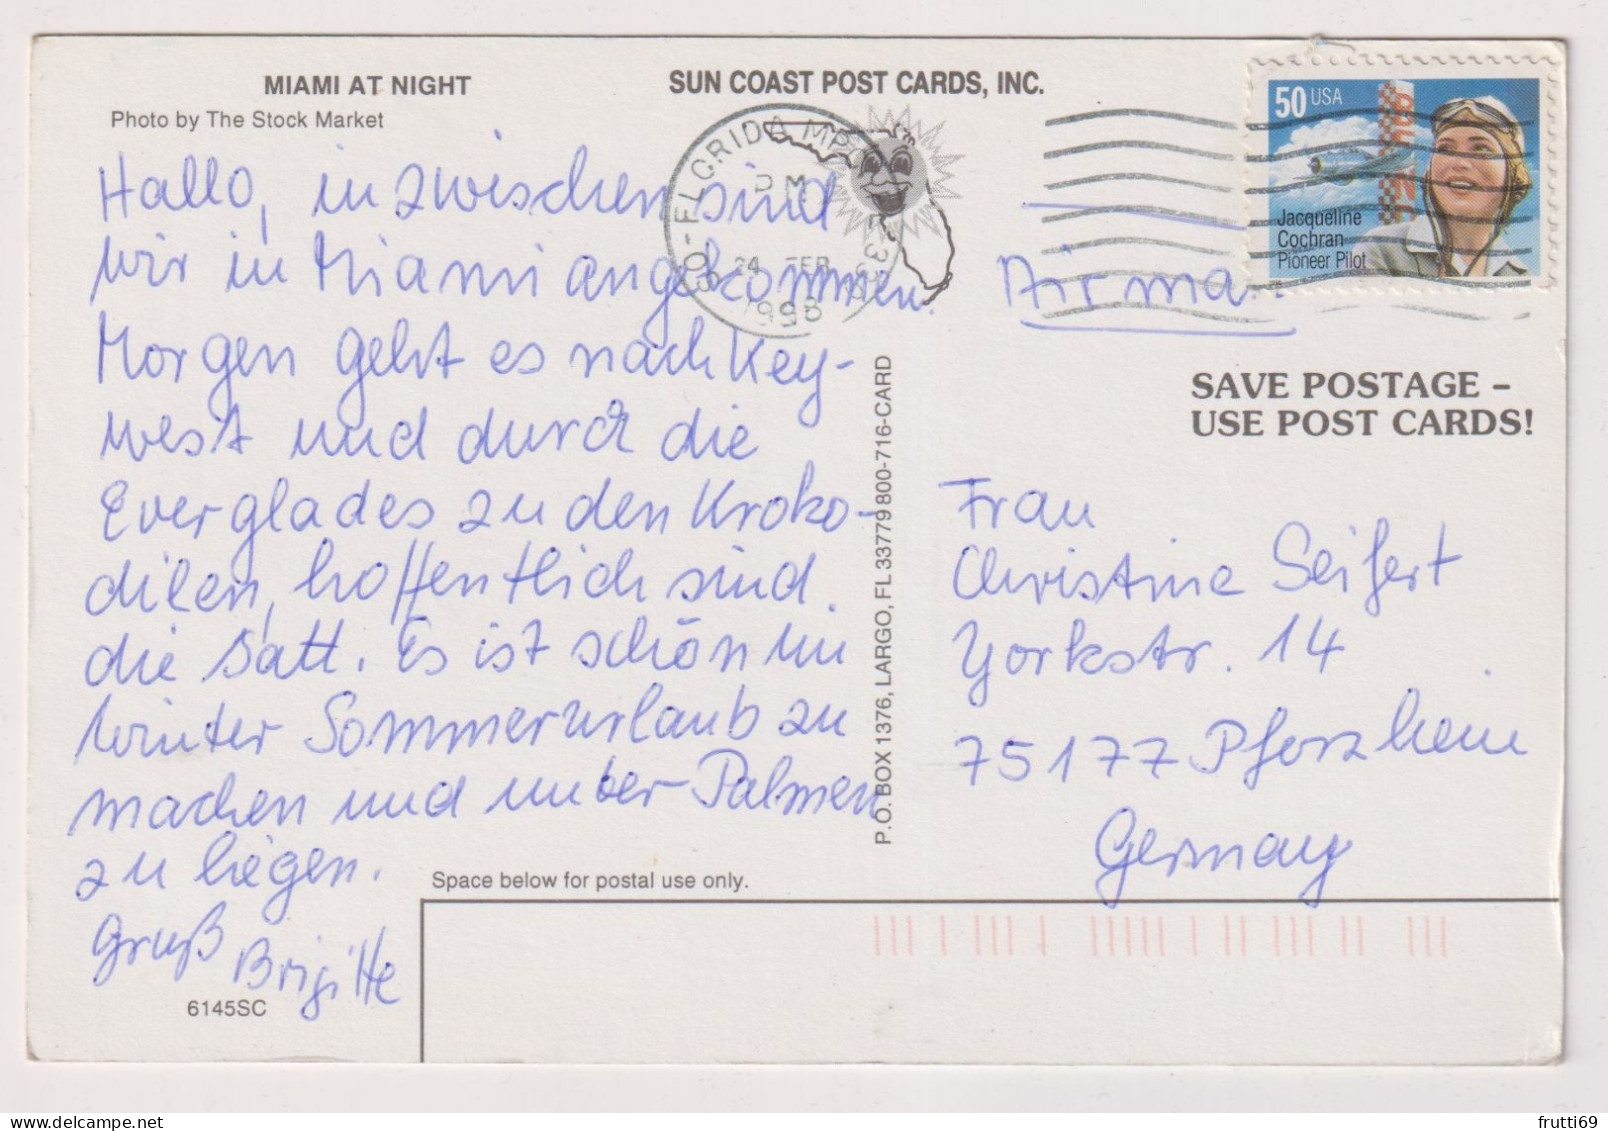 MIAMI AT NIGHT
Photo by The Stock Market
SUN COAST POST CARDS, INC.
Hallo, inzwischen sind
wir in Miami angekommen.
Morgen geht es nach Key-
west und durch die
Everglades zu den Kroko-
dilen, hoffentlich sind
die satt. Es ist schön im
Winter Sommerurlaub zu
machen und unter Palmen
zu liegen.
Gruß Brigitte
6145SC
P.O. BOX 1376, LARGO, FL 33779 800-716-CARD
SO-FLORIDA MPC
PM
24 FEB
1998
50 USA
Jacqueline
Cochran
Pioneer Pilot
Air mail
SAVE POSTAGE –
USE POST CARDS!
Frau
Christine Seifert
Yorkstr. 14
75177 Pforzheim
Germany
Space below for postal use only.
frutti69